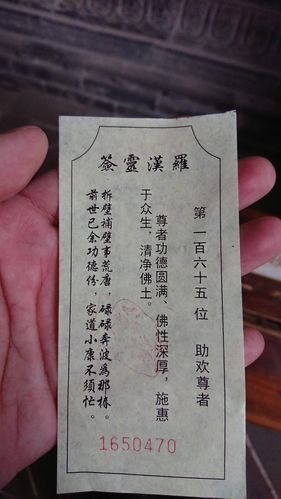 羅漢靈簽
第一百六十五位 助欢尊者
尊者功德圆满、佛性深厚，施惠
于众生，清净佛土。
拆壁補壁事荒唐，碌碌奔波為那樁。
前世已余功德份，家道小康不須忙。
1650470